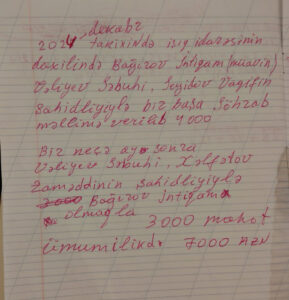 2024-dekabr
tarixində işıq idarəsinin
daxilində Bağırov İntiqam (müavin)
Vəliyev Səbuhi, Seyidov Vaqifin
şahidliyiylə birbaşa Söhrab
məllimə verilib 4000
Bir neçə ay sonra
Vəliyev Səbuhi, Xəlfətov
Zaməddinin şahidliyiylə
3000 Bağırov İntiqam
olmaqla
3000 manat
Ümumilikdə 7000 AZN